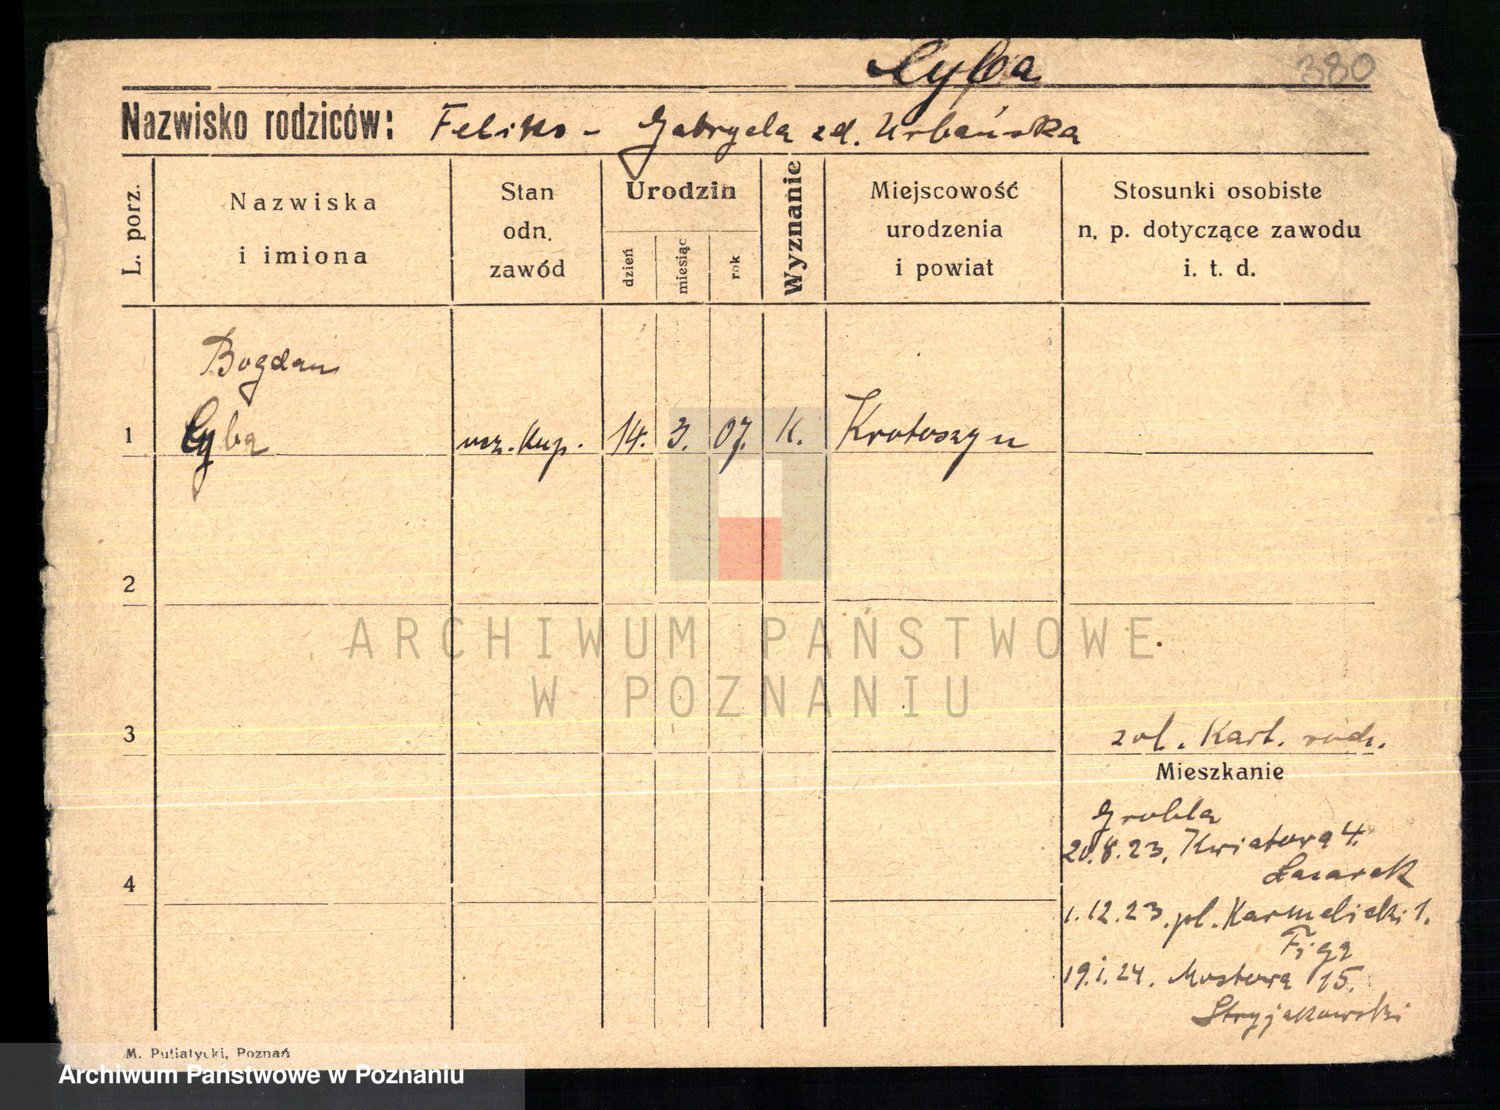 Cyba
380
Nazwisko rodziców: Feliks - Gabryela zd. Urbańska
L. porz.
Nazwiska
i imiona
Stan
odn.
zawód
Urodzin
dzień
miesiąc
rok
Wyznanie
Miejscowość
urodzenia
i powiat
Stosunki osobiste
n. p. dotyczące zawodu
i. t. d.
Bogdan
1 Cyba ucz. kup. 14. 3. 07. K. Krotoszyn
2
ARCHIWUM PAŃSTWOWE
W POZNANIU
3
zał. Kart. rodz.
Mieszkanie
4
Grobla
20.8.23. Kwiatowa 4.
Łazarek
1.12.23. pl. Karmelicki 1.
Figa
19.1.24. Mostowa 15.
Stryjakowski
M. Putiatycki, Poznań
Archiwum Państwowe w Poznaniu